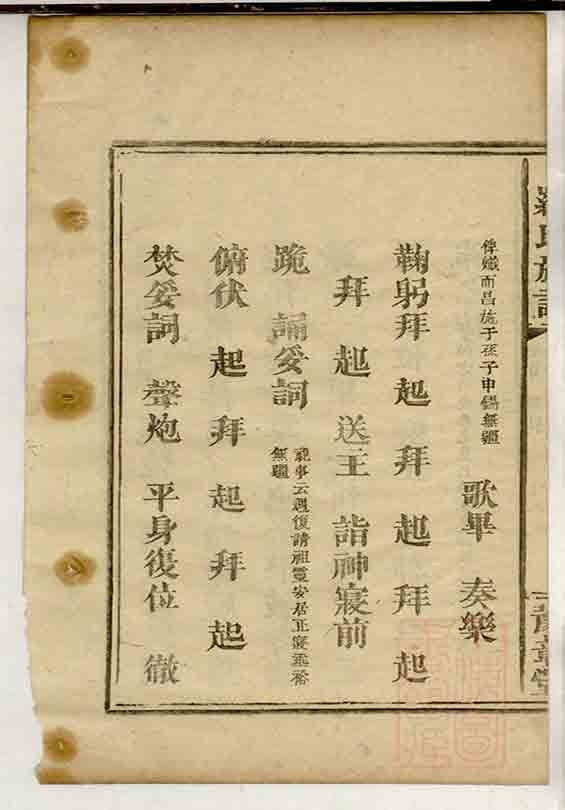 羅氏族譜
俾熾而昌施于孫子申錫無疆
歌畢 奏樂
鞠躬拜起 拜起拜起
拜起 送主 詣神寢前
跪 誦妥詞
祝事云題復請祖靈安居正寢垂裕
無疆
俯伏 起 拜 起 拜 起
焚妥詞 聲炮 平身復位 徹
章堂